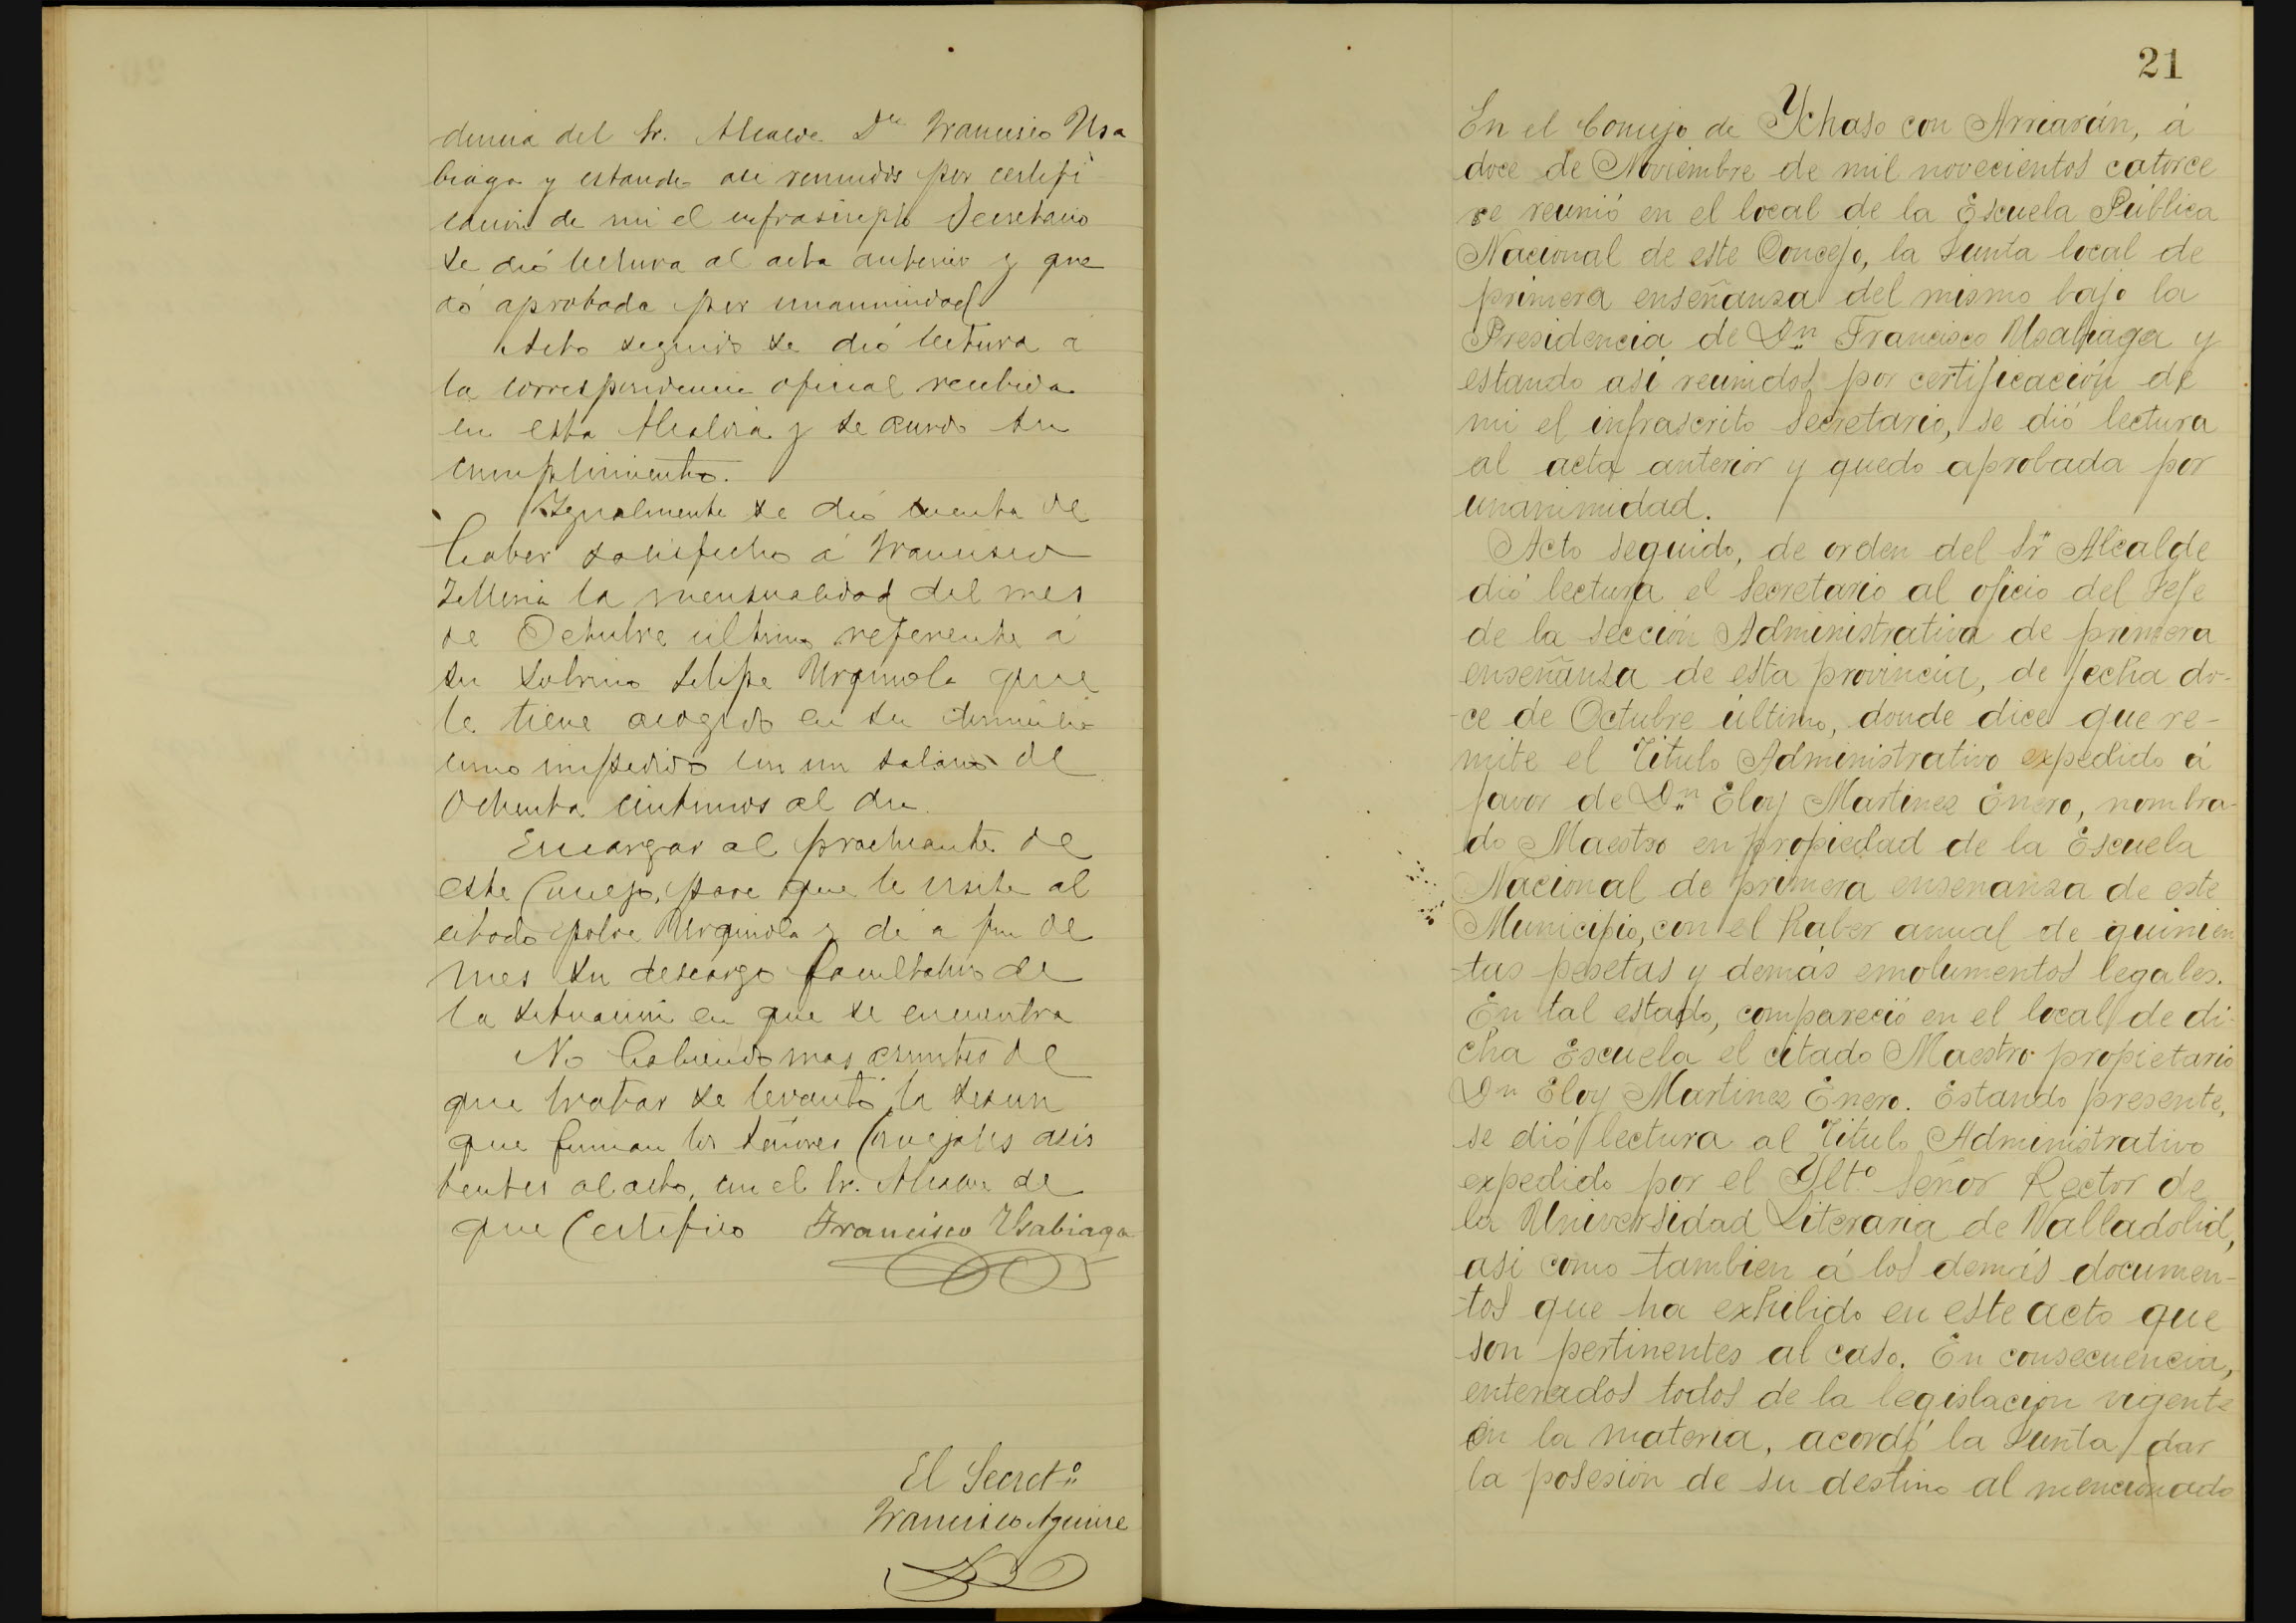 dencia del Sr. Alcalde Dn Francisco Usa
biaga y estando asi reunidos por certifi
cación de mi el infrascripto Secretario
se dió lectura al acta anterior y que
dó aprobada por unanimidad
Acto seguido se dió lectura a
la correspondencia oficial recibida
en esta Alcaldia y se acordo su
cumplimiento.
Igualmente se dió cuenta de
haber satisfecho á Francisco
Telleria la mensualidad del mes
de Octubre ultimo referente á
su sobrino Felipe Urquiola que
le tiene acogido en su domicilio
como impedido con un salario de
Ochenta centimos al dia
Encargar al practicante de
este Concejo, para que le visite al
citado pobre Urquiola y dé a fin de
mes su descargo facultativo de
la situación en que se encuentra
No habiendo mas asuntos de
que tratar se levantó la sesion
que firman los señores Concejales asis
tentes al acto, con el Sr. Alcalde de
que Certifico Francisco Usabiaga
El Secretº
Francisco Aguirre
21
En el Concejo de Ychaso con Arriarán, á
doce de Noviembre de mil novecientos catorce
se reunió en el local de la Escuela Pública
Nacional de este Concejo, la Junta local de
primera enseñansa del mismo bajo la
Presidencia de Dn Francisco Usabiaga y
estando asi reunidos por certificación de
mi el infrascrito Secretario, se dió lectura
al acta anterior y quedo aprobada por
unanimidad.
Acto seguido, de orden del Sr Alcalde
dió lectura el Secretario al oficio del Jefe
de la Sección Administrativa de primera
enseñansa de esta provincia, de fecha do-
-ce de Octubre último, donde dice que re-
mite el Titulo Administrativo expedido á
favor de Dn Eloy Martinez Enero, nombra-
do Maestro en propiedad de la Escuela
Nacional de primera ensenansa de este
Municipio, con el haber anual de quinien
-tas pesetas y demás emolumentos legales.
En tal estado, compareció en el local de di-
cha Escuela el citado Maestro propietario
Dn Eloy Martinez Enero. Estando presente,
se dió lectura al Titulo Administrativo
expedido por el Yltº Señor Rector de
la Universidad Literaria de Valladolid,
asi como tambien á los demás documen-
-tos que ha exhibido en este acto que
son pertinentes al caso. En consecuencia,
enterados todos de la legislación vigente
en la materia, acordó la Junta dar
la posesión de su destino al mencionado